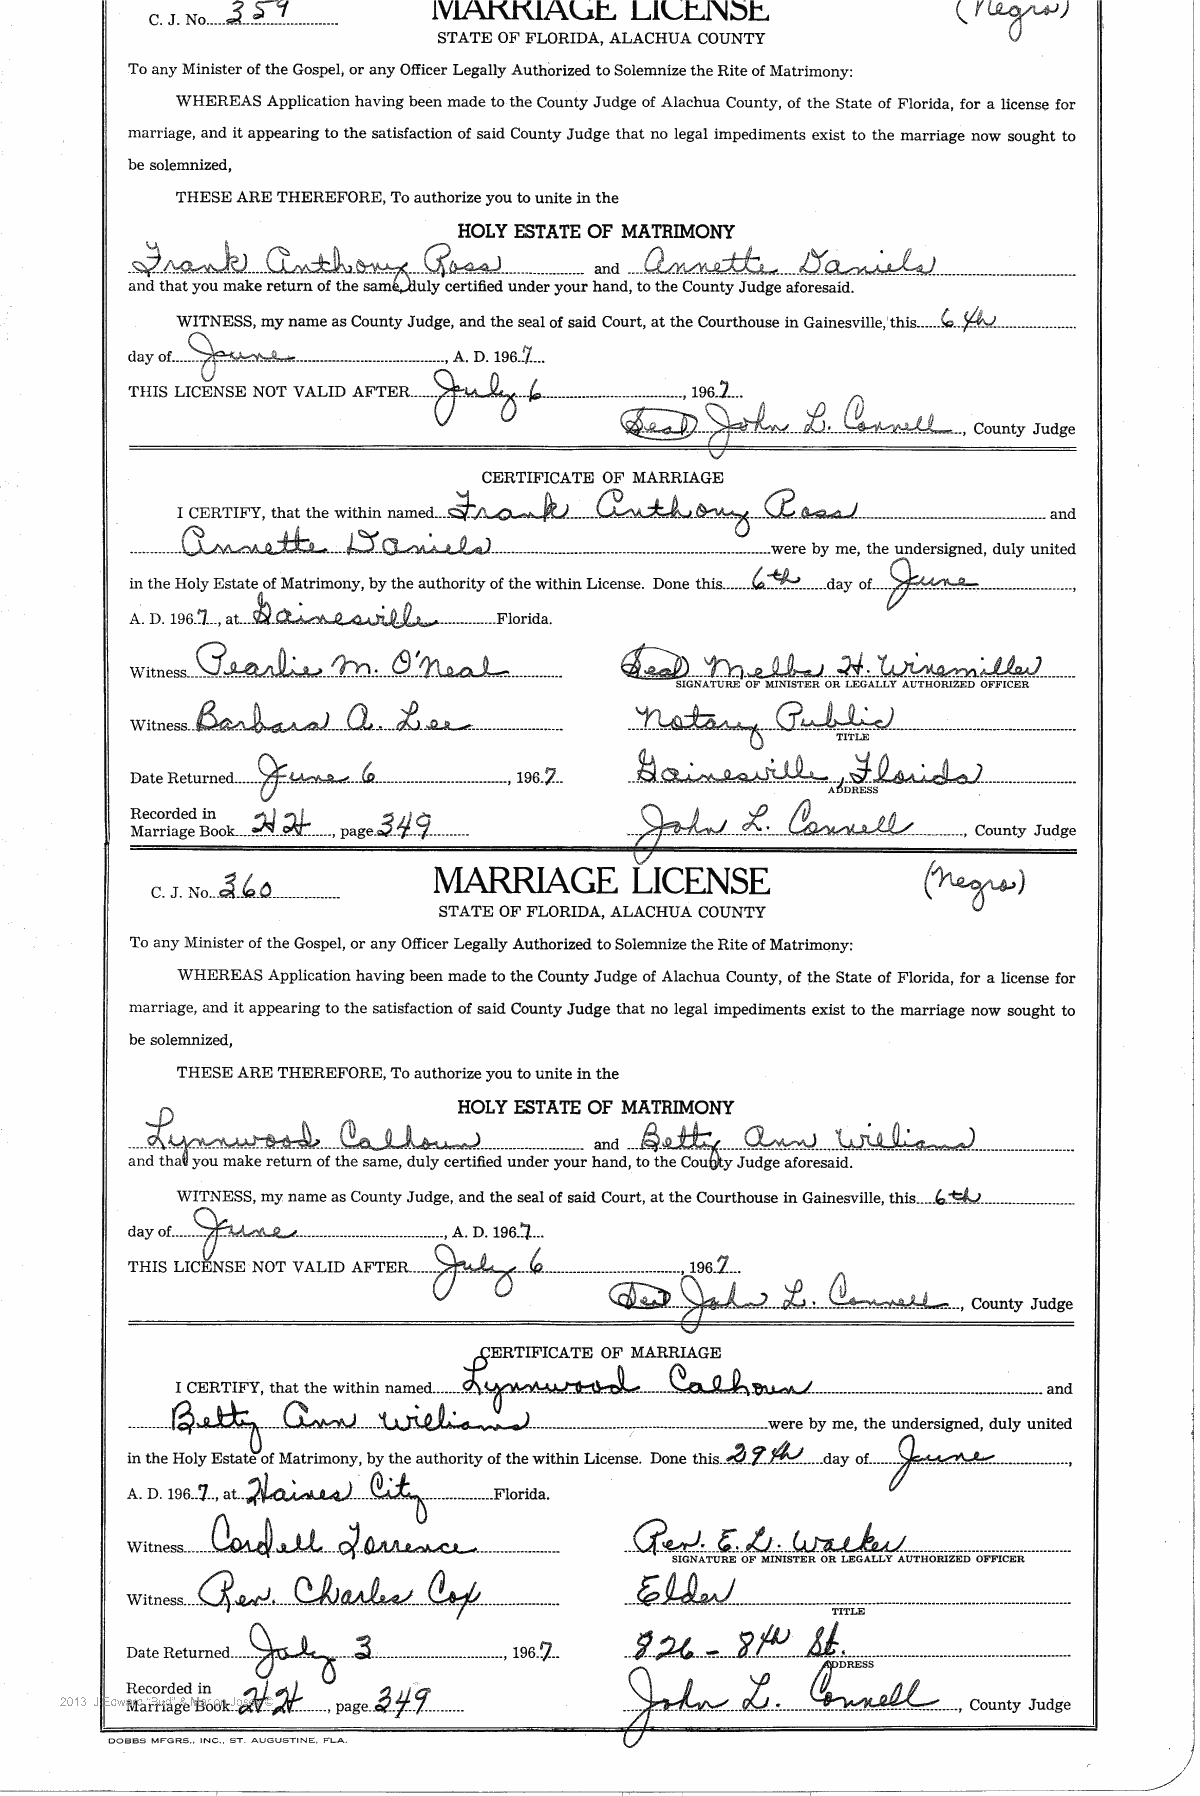 C. J. No. 359 MARRIAGE LICENSE (Negro)
STATE OF FLORIDA, ALACHUA COUNTY
To any Minister of the Gospel, or any Officer Legally Authorized to Solemnize the Rite of Matrimony:
WHEREAS Application having been made to the County Judge of Alachua County, of the State of Florida, for a license for
marriage, and it appearing to the satisfaction of said County Judge that no legal impediments exist to the marriage now sought to
be solemnized,
THESE ARE THEREFORE, To authorize you to unite in the
HOLY ESTATE OF MATRIMONY
Frank Anthony Ross and Annette Daniels
and that you make return of the same, duly certified under your hand, to the County Judge aforesaid.
WITNESS, my name as County Judge, and the seal of said Court, at the Courthouse in Gainesville, this 6th
day of June, A. D. 1967
THIS LICENSE NOT VALID AFTER July 6, 1967
(Seal) John L. Connell, County Judge
CERTIFICATE OF MARRIAGE
I CERTIFY, that the within named Frank Anthony Ross and
Annette Daniels were by me, the undersigned, duly united
in the Holy Estate of Matrimony, by the authority of the within License. Done this 6th day of June,
A. D. 1967, at Gainesville Florida.
Witness Pearlie M. O'Neal (Seal) Melba H. Winemiller
SIGNATURE OF MINISTER OR LEGALLY AUTHORIZED OFFICER
Witness Barbara A. Lee Notary Public
TITLE
Date Returned June 6, 1967 Gainesville, Florida
ADDRESS
Recorded in
Marriage Book HH, page 349 John L. Connell, County Judge
C. J. No. 360 MARRIAGE LICENSE (Negro)
STATE OF FLORIDA, ALACHUA COUNTY
To any Minister of the Gospel, or any Officer Legally Authorized to Solemnize the Rite of Matrimony:
WHEREAS Application having been made to the County Judge of Alachua County, of the State of Florida, for a license for
marriage, and it appearing to the satisfaction of said County Judge that no legal impediments exist to the marriage now sought to
be solemnized,
THESE ARE THEREFORE, To authorize you to unite in the
HOLY ESTATE OF MATRIMONY
Lynnwood Calhoun and Betty Ann Williams
and that you make return of the same, duly certified under your hand, to the County Judge aforesaid.
WITNESS, my name as County Judge, and the seal of said Court, at the Courthouse in Gainesville, this 6th
day of June, A. D. 1967
THIS LICENSE NOT VALID AFTER July 6, 1967
(Seal) John L. Connell, County Judge
CERTIFICATE OF MARRIAGE
I CERTIFY, that the within named Lynnwood Calhoun and
Betty Ann Williams were by me, the undersigned, duly united
in the Holy Estate of Matrimony, by the authority of the within License. Done this 29th day of June,
A. D. 1967, at Haines City Florida.
Witness Cordell Torrence Rev. E. L. Walker
SIGNATURE OF MINISTER OR LEGALLY AUTHORIZED OFFICER
Witness Rev. Charles Cox Elder
TITLE
Date Returned July 3, 1967 826 - 8th St.
ADDRESS
Recorded in
Marriage Book HH, page 349 John L. Connell, County Judge
2013 J. Edward "Bud" &
DOBBS MFGRS., INC., ST. AUGUSTINE, FLA.